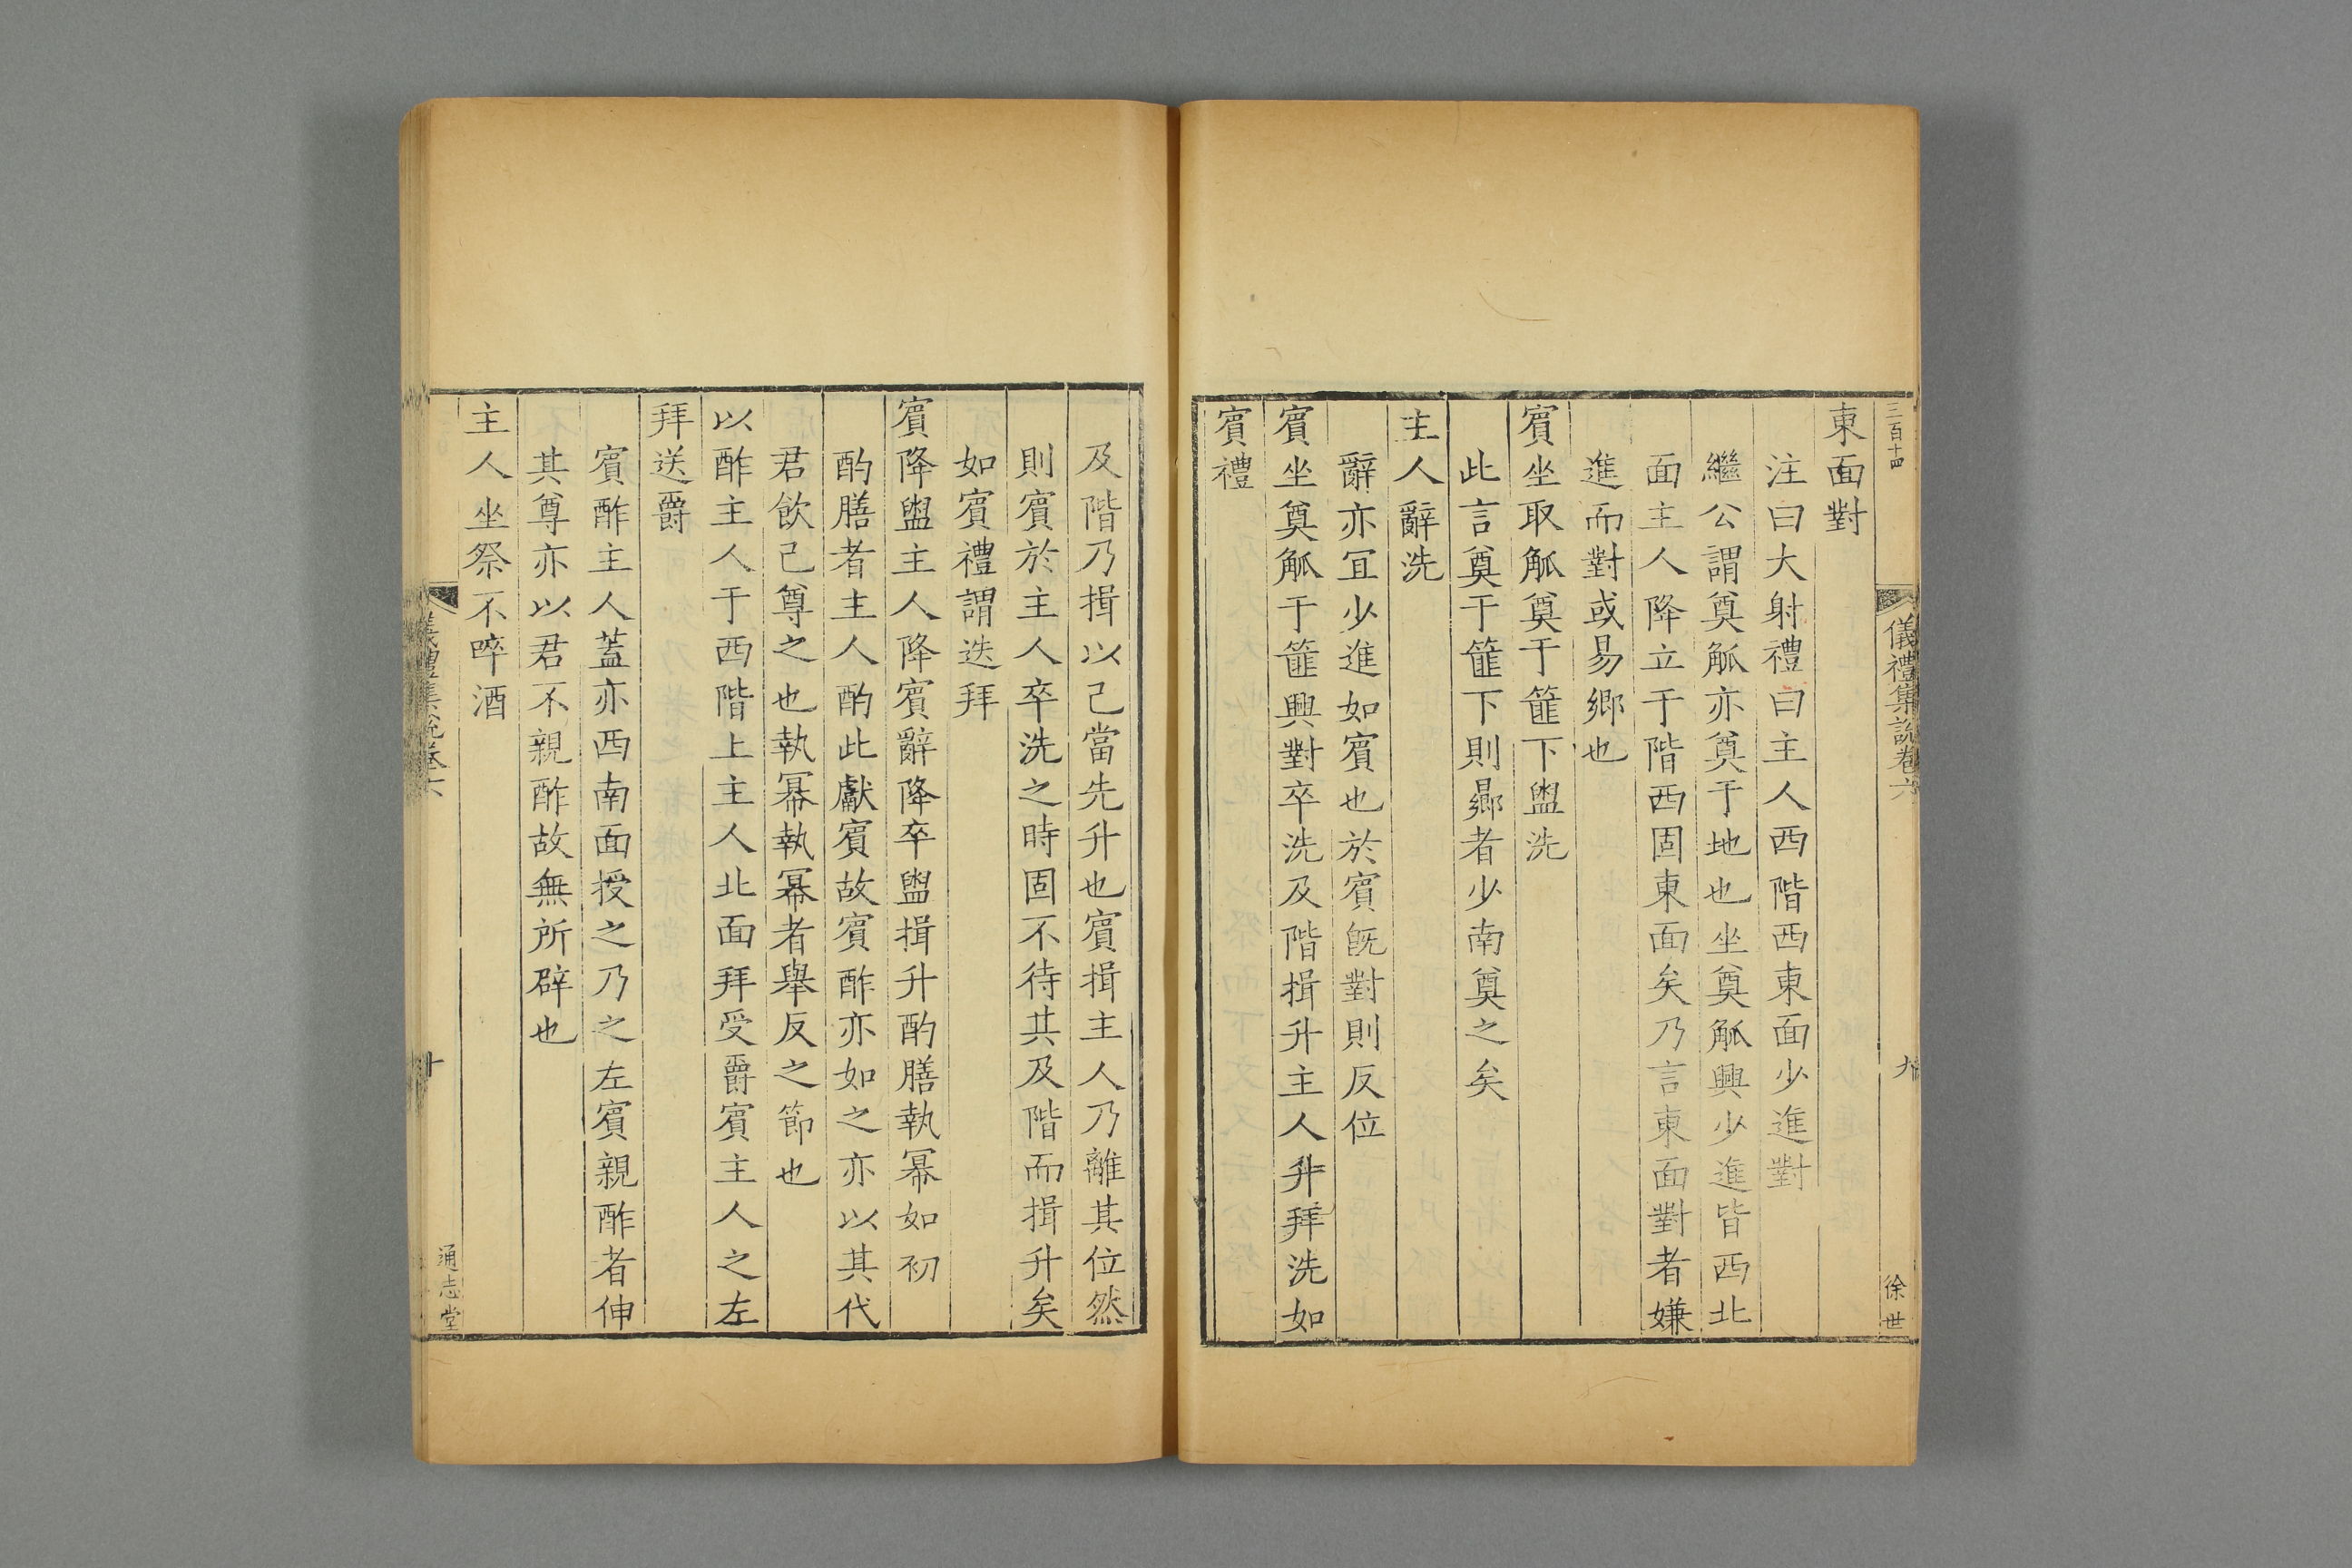 三百十四
儀禮集說卷六
九
徐世
東面對
注曰大射禮曰主人西階西東面少進對
繼公謂奠觚亦奠于地也坐奠觚興少進皆西北
面主人降立于階西固東面矣乃言東面對者嫌
進而對或易鄉也
賓坐取觚奠于篚下盥洗
此言奠于篚下則曏者少南奠之矣
主人辭洗
辭亦宜少進如賓也於賓旣對則反位
賓坐奠觚于篚興對卒洗及階揖升主人升拜洗如
賓禮
及階乃揖以己當先升也賓揖主人乃離其位然
則賓於主人卒洗之時固不待其及階而揖升矣
如賓禮謂迭拜
賓降盥主人降賓辭降卒盥揖升酌膳執冪如初
酌膳者主人酌此獻賓故賓酢亦如之亦以其代
君飲己尊之也執冪執冪者舉反之節也
以酢主人于西階上主人北面拜受爵賓主人之左
拜送爵
賓酢主人蓋亦西南面授之乃之左賓親酢者伸
其尊亦以君不親酢故無所辟也
主人坐祭不啐酒
儀禮集說卷六
十
通志堂